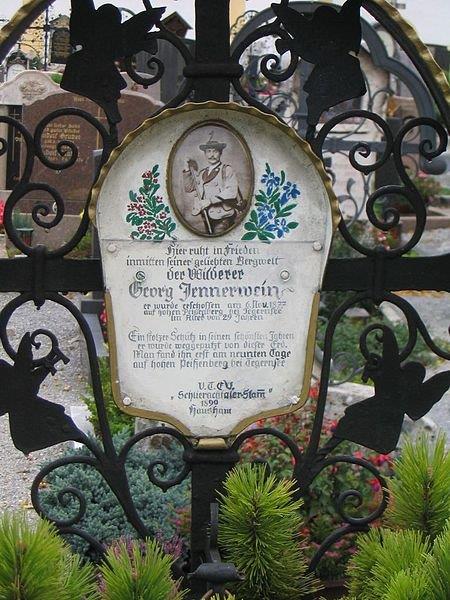 Hier ruht in Frieden
inmitten seiner geliebten Bergwelt
der Wilderer
Georg Jennerwein
er wurde erschossen am 6. Nov. 1877
auf hohen Peißenberg bei Tegernsee
Im Alter von 29 Jahren
Ein stolzer Schütz in seinen schönsten Jahren
er wurde weggeputzt von dieser Erd.
Man fand ihn erst am neunten Tage
auf hohen Peißenberg bei Tegernsee
V.T.E.V.
„Schlierachtaler-Stamm"
1899
Hausham